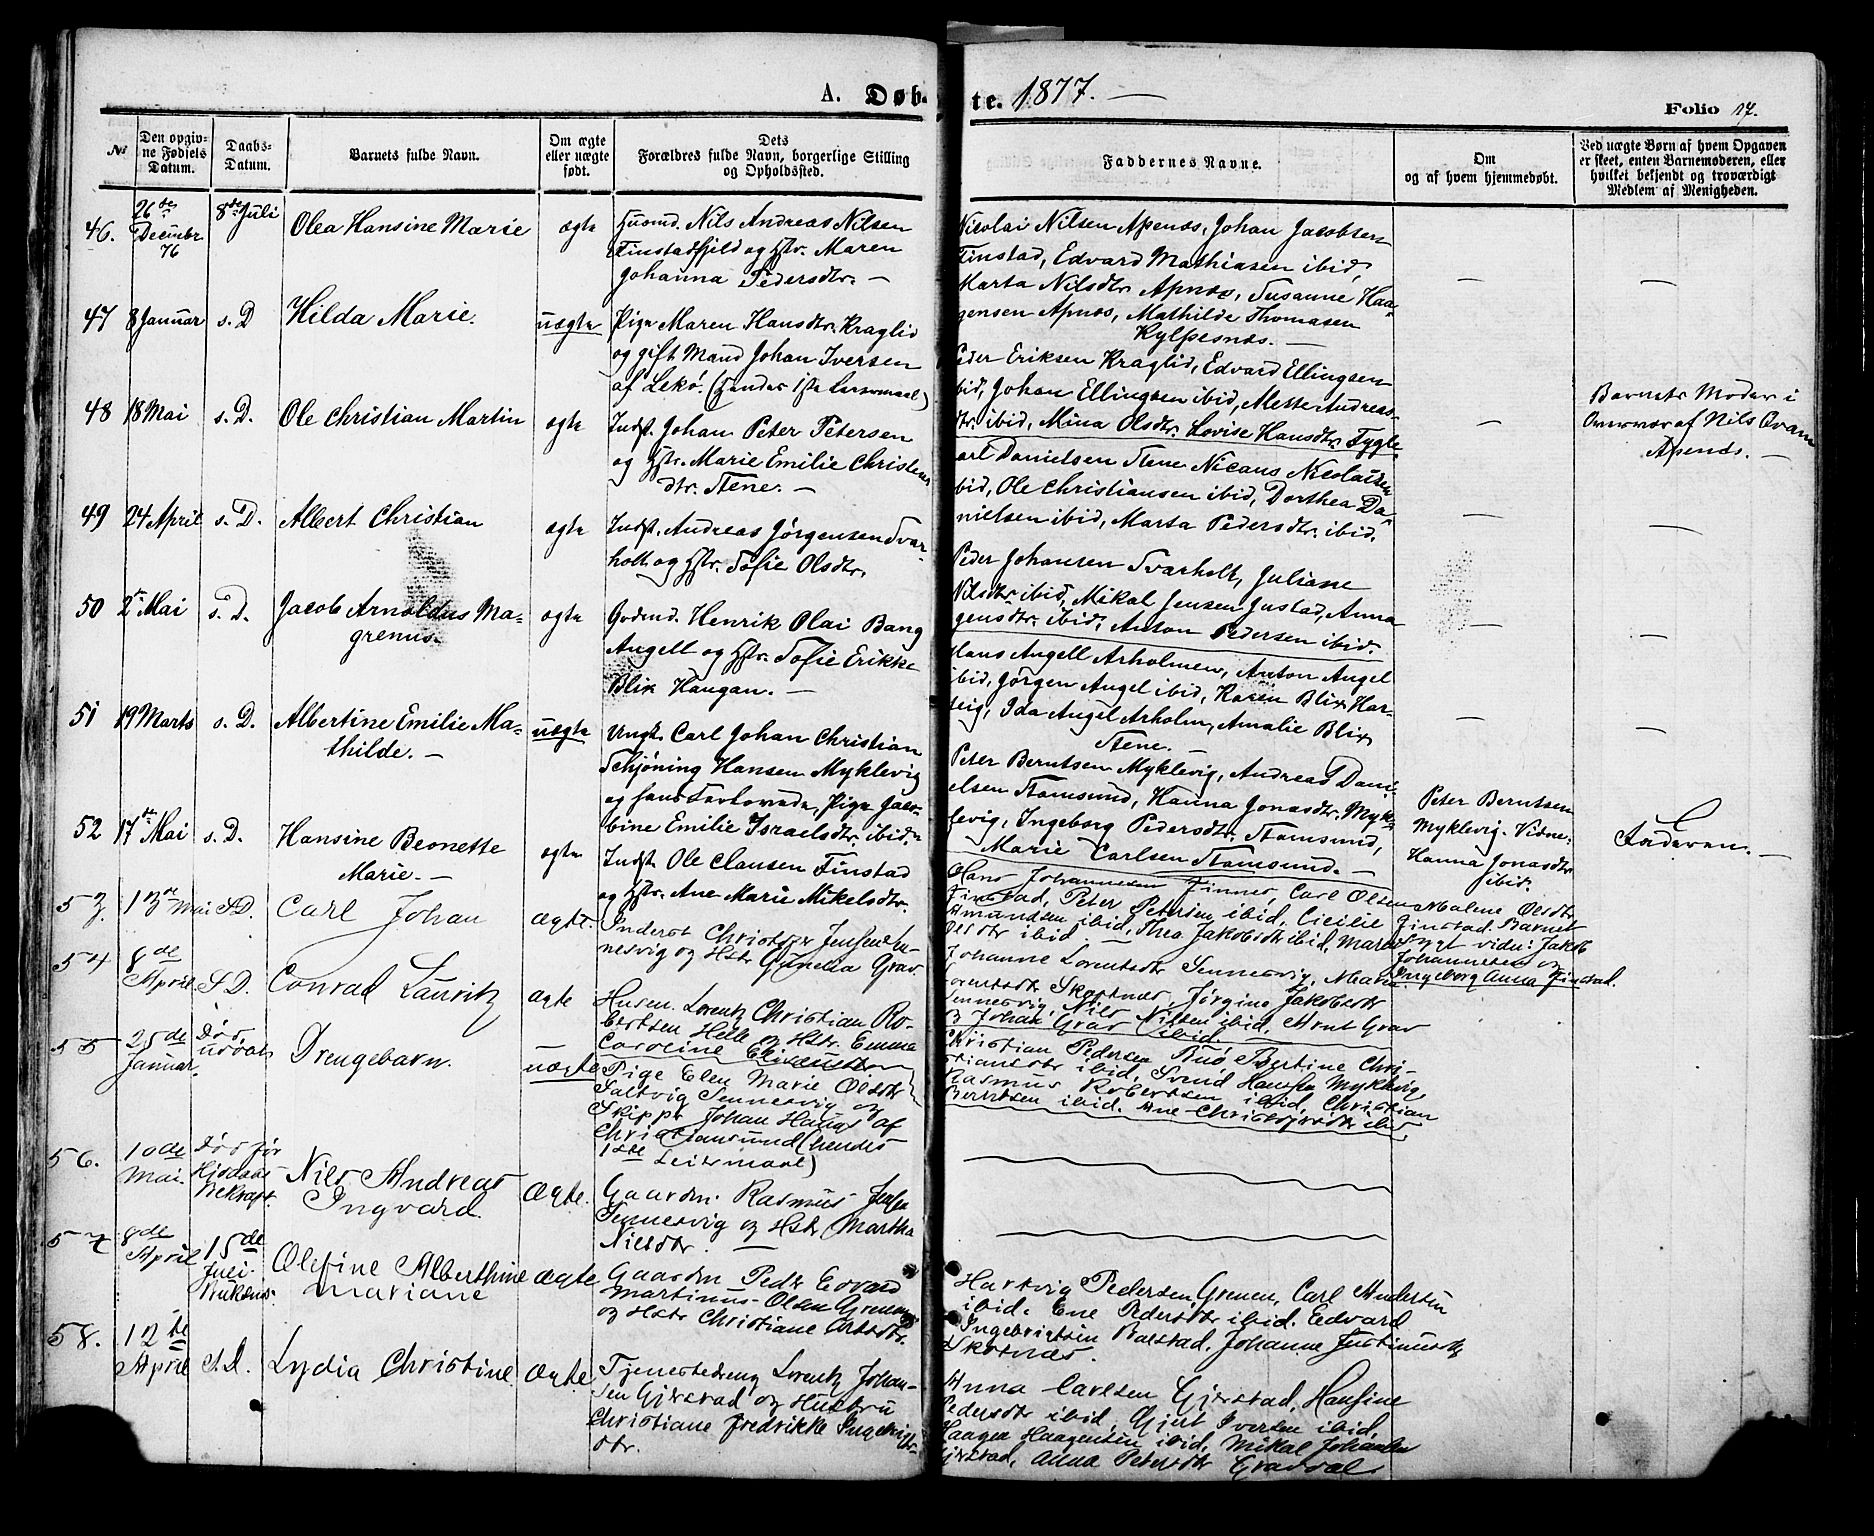 A. Døb-
te. 1877. —
Folio 17.
No
Den opgiv-
ne Fødsels
Datum.
Daabs-
Datum.
Barnets fulde Navn.
Om ægte
eller uægte
født.
Dets
Forældres fulde Navn, borgerlige Stilling
og Opholdssted.
Faddernes Navne.
Om
og af hvem hjemmedøbt.
Ved uægte Børn af hvem Opgaven
er skeet, enten Barnemoderen, eller
hvilket bekjendt og troværdigt
Medlem af Menigheden.
46.
26de
Decmbr
76
8de Juli
Olea Hansine Marie
ægte
Huusmd. Nils Andreas Nilsen
Finstadfjeld og Hstr. Maren
Johanna Pedersdtr. —
Nicolai Nilsen Apenæs, Johan Jacobsen
Finstad, Edvard Mathiasen ibid,
Marta Nilsdtr Apnæs, Susanne Haa-
gensen Apnæs, Mathilde Thomasen
Kylpesnæs. —
47
8 Januar
s. D
Hilda Marie.
uægte
Pige Maren Hansdtr. Kraglid
og gift Mand Johan Iversen
af Lekø. (Hendes 1ste Leiermaal)
Peder Eriksen Kraglid, Edvard Ellingsen
ibid, Johan Ellingsen ibid, Mette Andreas-
dtr. ibid, Mina Olsdtr. Lovise Hansdtr. Fygle
Barnets Moder i
Overvær af Nils Qvam
Apenæs. —
48
18 Mai
s. D.
Ole Christian Martin
ægte
Indst. Johan Peter Petersen
og Hstr. Marie Emilie Christens
dtr. Stene. —
Danielsen Stene, Nicaus Nicolaisen
ibid, Ole Christiansen ibid, Dorthea Da-
nielsen ibid, Marta Pedersdtr. ibid.
49
24 April
s. D.
Albert Christian
ægte
Indst. Andreas Jørgensen Svar-
holt og Hstr. Sofie Olsdtr.
Peder Johansen Svarholt, Juliane
Nilsdtr ibid, Mikal Jensen Justad, Anna
gensdtr. ibid, Anton Pedersen ibid.
50
2den Mai
s. D.
Jacob Arnoldus Ma-
grenus.
ægte
Godsmd. Henrik Olai Bang
Angell og Hstr. Sofie Erikke
Blix Haugan. —
Hans Angell Arholmen, Anton Angel
ibid, Jørgen Angel ibid, Karen Blix Har-
seig, Ida Angel Arholm, Amalie Blix
Stene. —
51
19 Marts
s. D.
Albertine Emilie Ma-
thilde. —
uægte
Ungk. Carl Johan Christian
Schjøning Hansen Myklevig
og hans Forlovede, Pige Jaco-
bine Emilie Israelsdtr. ibid.
Peter Berntsen Myklevig, Andreas Dani-
elsen Stamsund, Hanna Jonasdtr. Myk-
levig, Ingeborg Pedersdtr. Stamsund,
Marie Carlsen Stamsund. —
Peter Berntsen
Myklevig. Vidne:
Hanna Jonasdtr
ibid.
Faderen. —
52
17de Mai
s. D.
Hansine Beonette
Marie. —
ægte
Indst. Ole Clausen Finstad
og Hstr. Ane Marie Mikelsdtr.
Hans Johannesen Finnes, Carl Olsen
Finstad, Peter Petersen ibid, Cicilie
Amandsen ibid, Thea Jakobsdtr ibid, Maren
Olsdtr ibid —
Malene Olsdtr
Finstad. Barnet
sygt vidn: Jakob
Johannesen og
Ingeborg Anna Finstad.
53.
13de Mai
S.D.
Carl Johan
Ægte.
Inderst Christofer Jensen Sen-
nesvig og Hstr Gunelia Grav.
Johanne Lorentsdtr Sennesvig, Maana
Lorentsdtr Skotnæs, Jørgine Jakobsdtr
Sennesvig, Nils Nilsen ibid. Arnt Grav
Johan Grav ibid.
54
8de
April
S.D.
Conrad Lauritz
Ægte
Husm. Lorentz Christian Ro-
bertsen Helle og Hstr. Emma
Caroline
Christian Pedersen Buø, Bertine Chri-
stiansdtr ibid, Svend Hansen Myklevig,
Rasmus Robertsen ibid, Christian
Berntsen ibid. Ane Christofersdtr ibid,
55
25de
Januar.
Død
udøbt
Drengebarn.
uægte
Pige Elen Marie Olsdtr
Saltvig Sennesvig og
Skippr Johan Haugs af
Christiansund (hendes
1ste Leiermaal)
56.
10de
Mai
Død før
Hjdaabs
Bekræft.
Nils Andreas
Ingvard
Ægte.
Gaardm. Rasmus Jensen
Sennesvig og Hstr Martha
Nilsdtr. —
57
8de
April
15de
Juli
Buksnæs.
Olefine Alberthine
Mariane
Ægte
Gaardm Pedr Edvard
Martinus Olsen Grenne
og Hstr Christiane
Hartvig Pedersen Grenen, Carl Andersen
ibid. Ene Pedersdtr ibid. Edvard
Ingebrigtsen Balstad, Johanne Justinusdtr
Skotnæs.
58.
12te
April
S.D.
Lydia Christine
Ægte
Tjenestedreng Lorentz Johan-
sen Gjerstad og Hustru
Christiane Fredrikke Ingebrigts-
dtr.
Anna Carlsen Gjerstad, Hansine
Pedersdtr ibid, Gjert Iversen ibid,
Haagen Haagensen ibid, Mikal Johansen
Gjerstad, Anna Petersdtr Gravdal